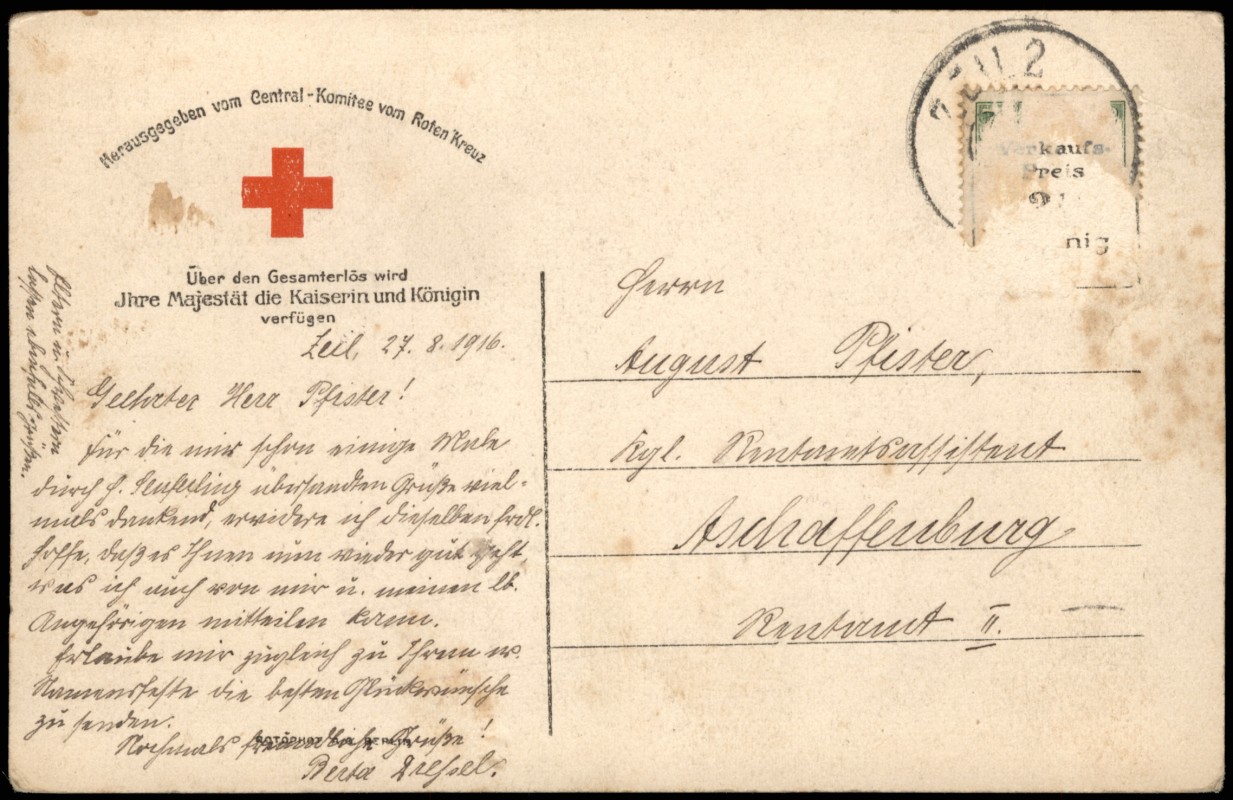 Herausgegeben vom Central-Komitee vom Roten Kreuz
Über den Gesamterlös wird
Ihre Majestät die Kaiserin und Königin
verfügen
Zeil, 27. 8. 1916.
Geehrter Herr Pfister!
Für die mir schon einige Male
durch H. übersandten Grüße viel-
mals dankend, erwidere ich dieselben frdl.
Hoffe, daß es Ihnen nun wieder gut geht
was ich auch von mir u. meinen lb.
Angehörigen mitteilen kann.
Erlaube mir zugleich zu Ihrem w.
Namensfeste die besten Glückwünsche
zu senden.
Nochmals freundliche Grüße!
Berta
Eltern u. Schwestern
lassen ebenfalls grüßen.
ROTOPHOT BERLIN
ZEIL 2
Verkaufs-
Preis
nig
Herrn
August Pfister,
Kgl. Rentamtsassistent
Aschaffenburg
Rentamt II.